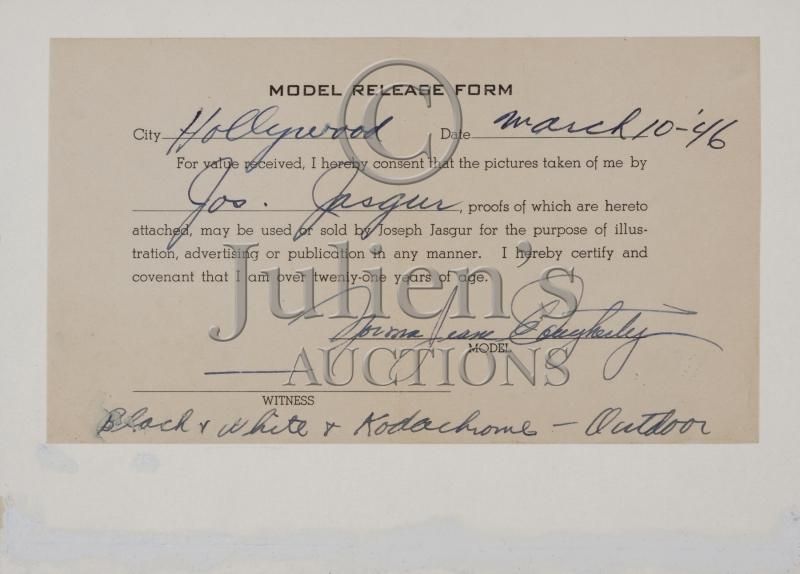 MODEL RELEASE FORM
City Hollywood Date March 10-'46
For value received, I hereby consent that the pictures taken of me by
Jos. Jasgur, proofs of which are hereto
attached, may be used or sold by Joseph Jasgur for the purpose of illus-
tration, advertising or publication in any manner. I hereby certify and
covenant that I am over twenty-one years of age.
Norma Jeane Dougherty
MODEL
WITNESS
Black & White & Kodachrome - Outdoor
©
Julien's
AUCTIONS